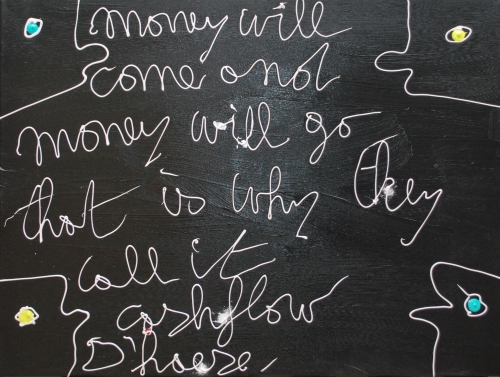 money will
come and
money will go
that is why they
call it
cashflow
D'hoese